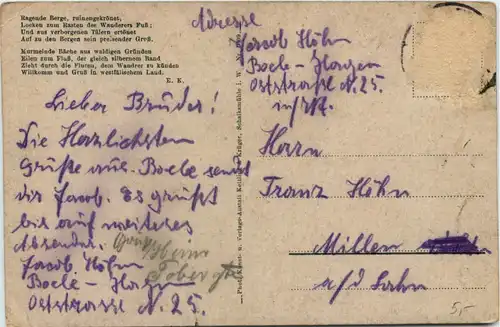 Ragende Berge, ruinengekrönt,
Locken zum Rasten des Wanderers Fuß;
Und aus verborgenen Tälern ertönet
Auf zu den Bergen sein preisender Gruß.
Murmelnde Bäche aus waldigen Gründen
Eilen zum Fluß, der gleich silbernem Band
Zieht durch die Fluren, dem Wandrer zu künden
Willkomm und Gruß in westfälischem Land.
E. K.
Lieber Bruder!
Die Herzlichsten
Grüße aus Boele sendet
dir Jacob. Es grüßt
bis auf weiteres
Absender.
Jacob Höhn
Boele-Hagen
Oststrasse N. 25.
Krüger, Schalksmühle i. W.
Adresse
Jacob Höhn
Boele-Hagen
Oststraße N. 25.
i/W.
Herrn
Franz Höhn
Millen
a/d Lahn
5,-